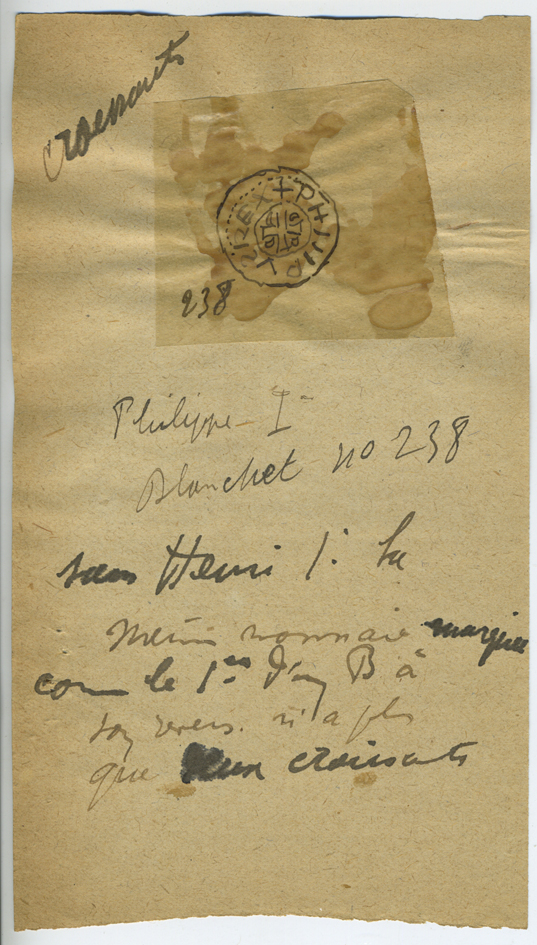 croissants
+PHILIP REX
238
Philippe Ier
Blanchet no 238
sous Henri 1er la
même monnaie marquée
comme le 1er d'un B à
son revers n'a plus
que deux croissants